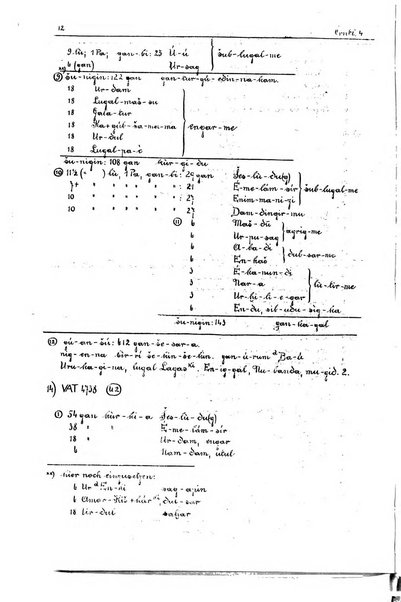 12 Orient. 4
9 lù; 1 Pa; gan-bi: 23 Ú-ú
6 (gan) Ur-sag } šub-lugal-me
⑨ šu-nigin: 122 gan gan-tur-gú-edin-na-kam.
18 Ur-dam
18 Lugal-maš-su
18 Gala-tur
18 Ka+gúb-ša-ma-ma } engar-me
18 Ur-dul
18 Lugal-pa-è
šu-nigin: 108 gan kùr-gi-du
⑩ 11½ (" ) lù, 1 Pa, gan-bi: 29 gan Šeš-lù-du(g)
7+ " " " " " : 21 É-me-lám-sír } šub-lugal-me
10 " " " " " : 27 Enim-ma-ni-zi
10 " " " " " : 27 Dam-dingir-mu
⑪ 6 Maš-dù
6 Ur-pu-sag } agrig-me
6 A-ba-di
6 En-kaš } dub-sar-me
3 É-ka-nun-di
3 Nar-a } lù-tir-me
3 Ur-ki-li-e-gar
6 En-du, sib-udu-sig-ka
šu-nigin: 143 gan-ka-gal
⑫ gú-an-šú: 612 gan-še-sar-a.
nig-en-na šir-ri še-kún-še-kún, gan-ú-rum ᵈBa-ú
Uru-ka-gi-na, lugal Lagaš ᴷⁱ. En-ig-gal, Nu-banda, mu-gid. 2.
14) VAT 4738 (42)
① 54 gan kùr-ki-a Šeš-lù-du(g)
38 " " É-me-lám-sír
18 " Ur-dam, engar
6 " Nam-dam, útul
*⁹) hier noch einzusetzen:
6 Ur ᵈEn-ki sag-apin
6 Amar-Kiš+kár ᵏⁱ, dub-sar
18 Ur-dul sahar